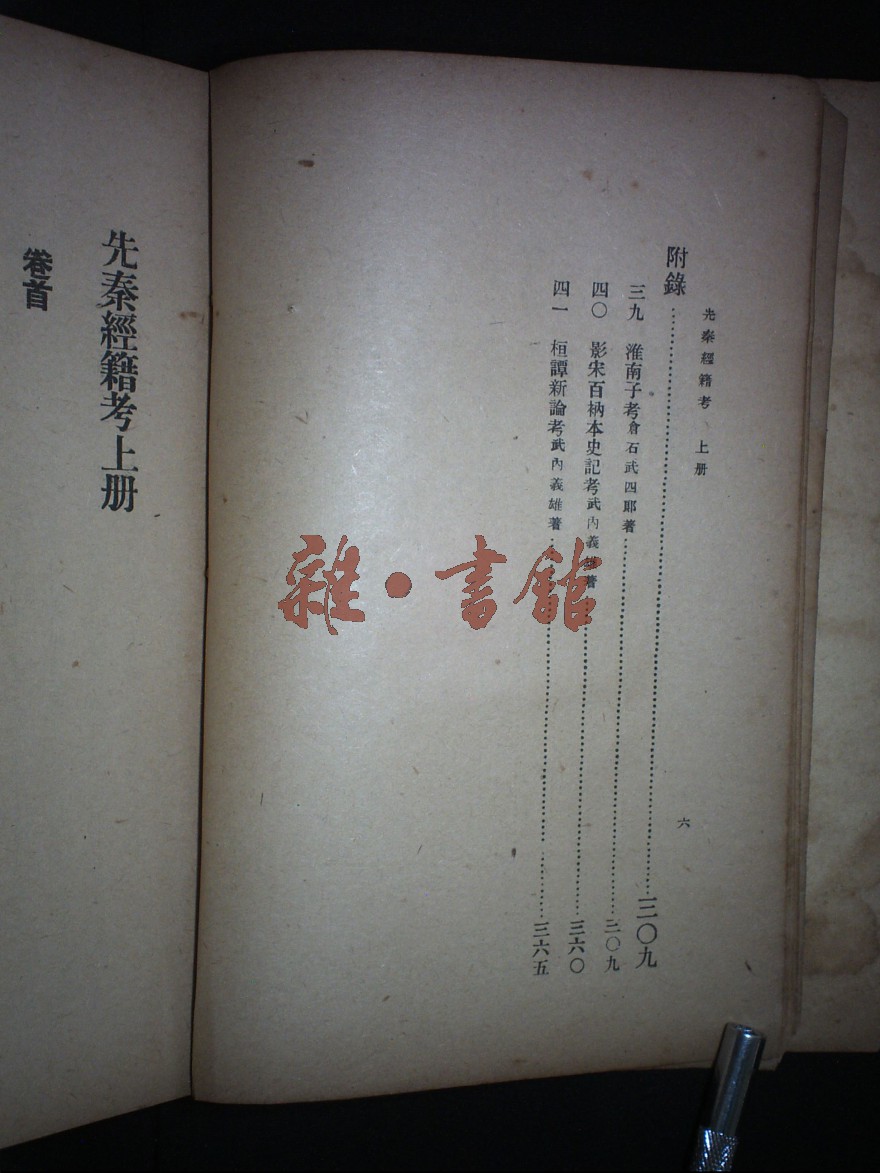 先秦經籍考 上册
六
附錄……三〇九
三九 淮南子考 倉石武四郎著……三〇九
四〇 影宋百衲本史記考 武內義雄著……三六〇
四一 桓譚新論考 武內義雄著……三六五
先秦經籍考上册
卷首
雜·書館